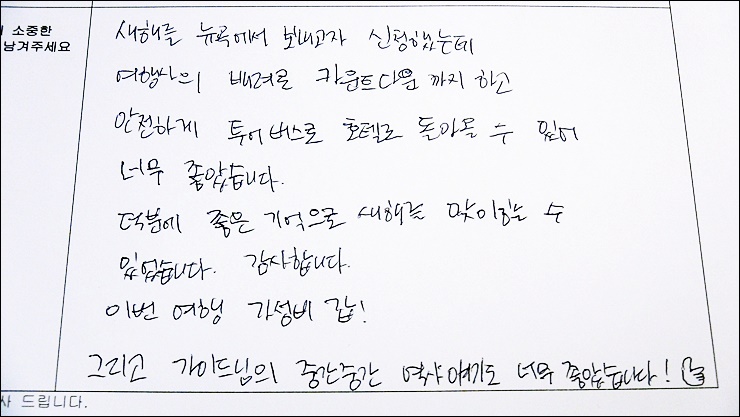 소중한
남겨주세요
새해를 뉴욕에서 보내고자 신청했는데
여행사의 배려로 카운트다운까지 하고
안전하게 투어버스로 호텔로 돌아올 수 있어
너무 좋았습니다.
덕분에 좋은 기억으로 새해를 맞이하는 수
있었습니다. 감사합니다.
이번 여행 가성비 갑!
그리고 가이드님의 중간중간 역사얘기도 너무 좋았습니다!
사 드립니다.